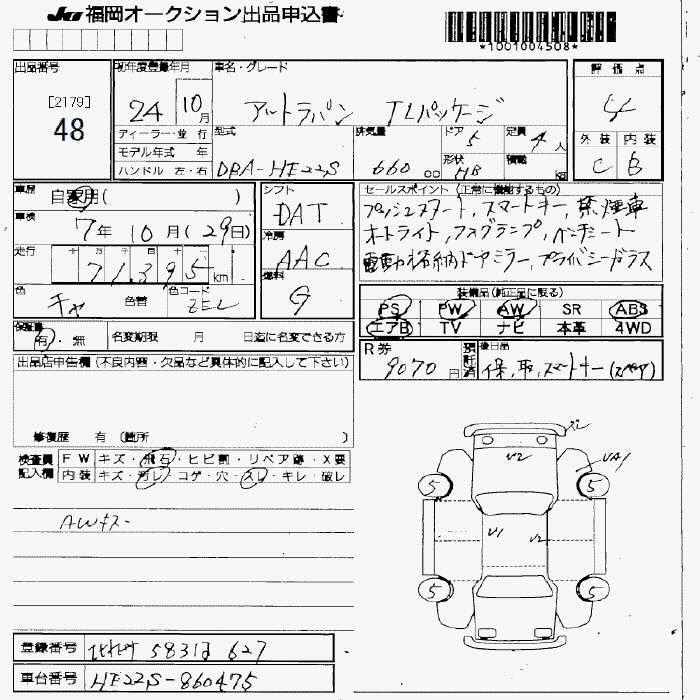 JU 福岡オークション出品申込書
*1001004508*
出品番号 初年度登録年月 車名・グレード 評価点
[2179] 24 10月 アルトラパン TLパッケージ 4
48 ディーラー・並行 型式 排気量 ドア 5 定員 4人 外装 内装
モデル年式 年 形状 積載
ハンドル 左・右 DBA-HE22S 660cc HB kg C B
車歴 自家用( ) シフト セールスポイント (正常に機能するもの)
車検 7年10月(29日) DAT プッシュスタート, スマートキー, 禁煙車
走行 十万千百十 冷房 オートライト, フォグランプ, ベンチシート
71,395km AAC 電動格納ドアミラー, プライバシーガラス
色 チャ 色替 色コード ZEL 燃料 G
装備品(純正品に限る)
PS PW AW SR ABS
エアB TV ナビ 本革 4WD
保証書 有・無 名変期限 月 日迄に名変できる方
R券 9070円 預託済 後日品 保, 取, スマートキー(スペア)
出品店申告欄 (不良内容・欠品など具体的に記入して下さい)
修復歴 有 (箇所 )
検査員 FW キズ・飛石・ヒビ割・リペア跡・X要
記入欄 内装 キズ・汚レ・コゲ・穴・スレ・キレ・破レ
AWキズ
U2 UA1
5 5
U1 U2
5 5
登録番号 583 627
車台番号 HE22S-860475